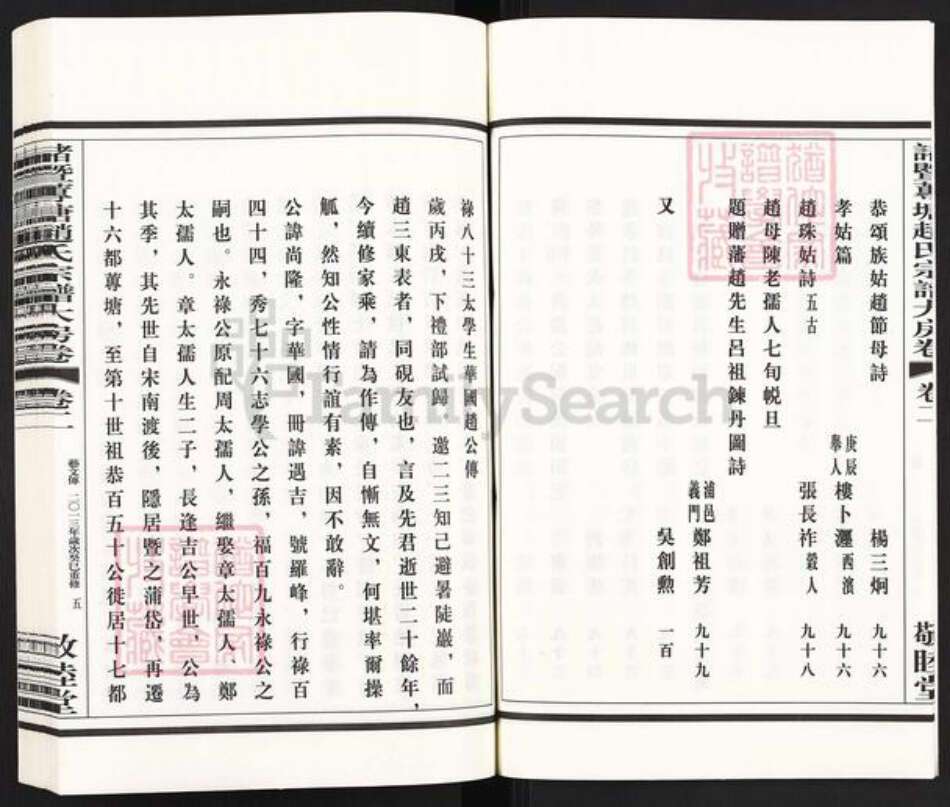 諸暨蓴塘趙氏宗譜大房卷 卷二 敬睦堂
恭頌族姑趙節母詩 楊三炯 九十六
孝姑篇 庚辰舉人 樓卜瀍 西濱 九十六
趙珠姑詩 五古 張長祚 巖人 九十八
趙母陳老孺人七旬帨旦
題贈藩趙先生呂祖鍊丹圖詩 浦邑義門 鄭祖芳 九十九
又 吳創勲 一百
祿八十三太學生華國趙公傳
歲丙戌，下禮部試歸，邀二三知己避暑陡巖，而
趙三東表者，同硯友也，言及先君逝世二十餘年，
今續修家乘，請為作傳，自慚無文，何堪率爾操
觚，然知公性情行誼有素，因不敢辭。
公諱尚隆，字華國，冊諱遇吉，號羅峰，行祿百
四十四，秀七十六志學公之孫，福百九永祿公之
嗣也。永祿公原配周太孺人，繼娶章太孺人、鄭
太孺人。章太孺人生二子，長逢吉公早世，公為
其季，其先世自宋南渡後，隱居暨之蒲岱，再遷
十六都蓴塘，至第十世祖恭百五十公徙居十七都
諸暨蓴塘趙氏宗譜大房卷 卷二 藝文傳 二〇一三年歲次癸巳重修 五 敬睦堂
FamilySearch